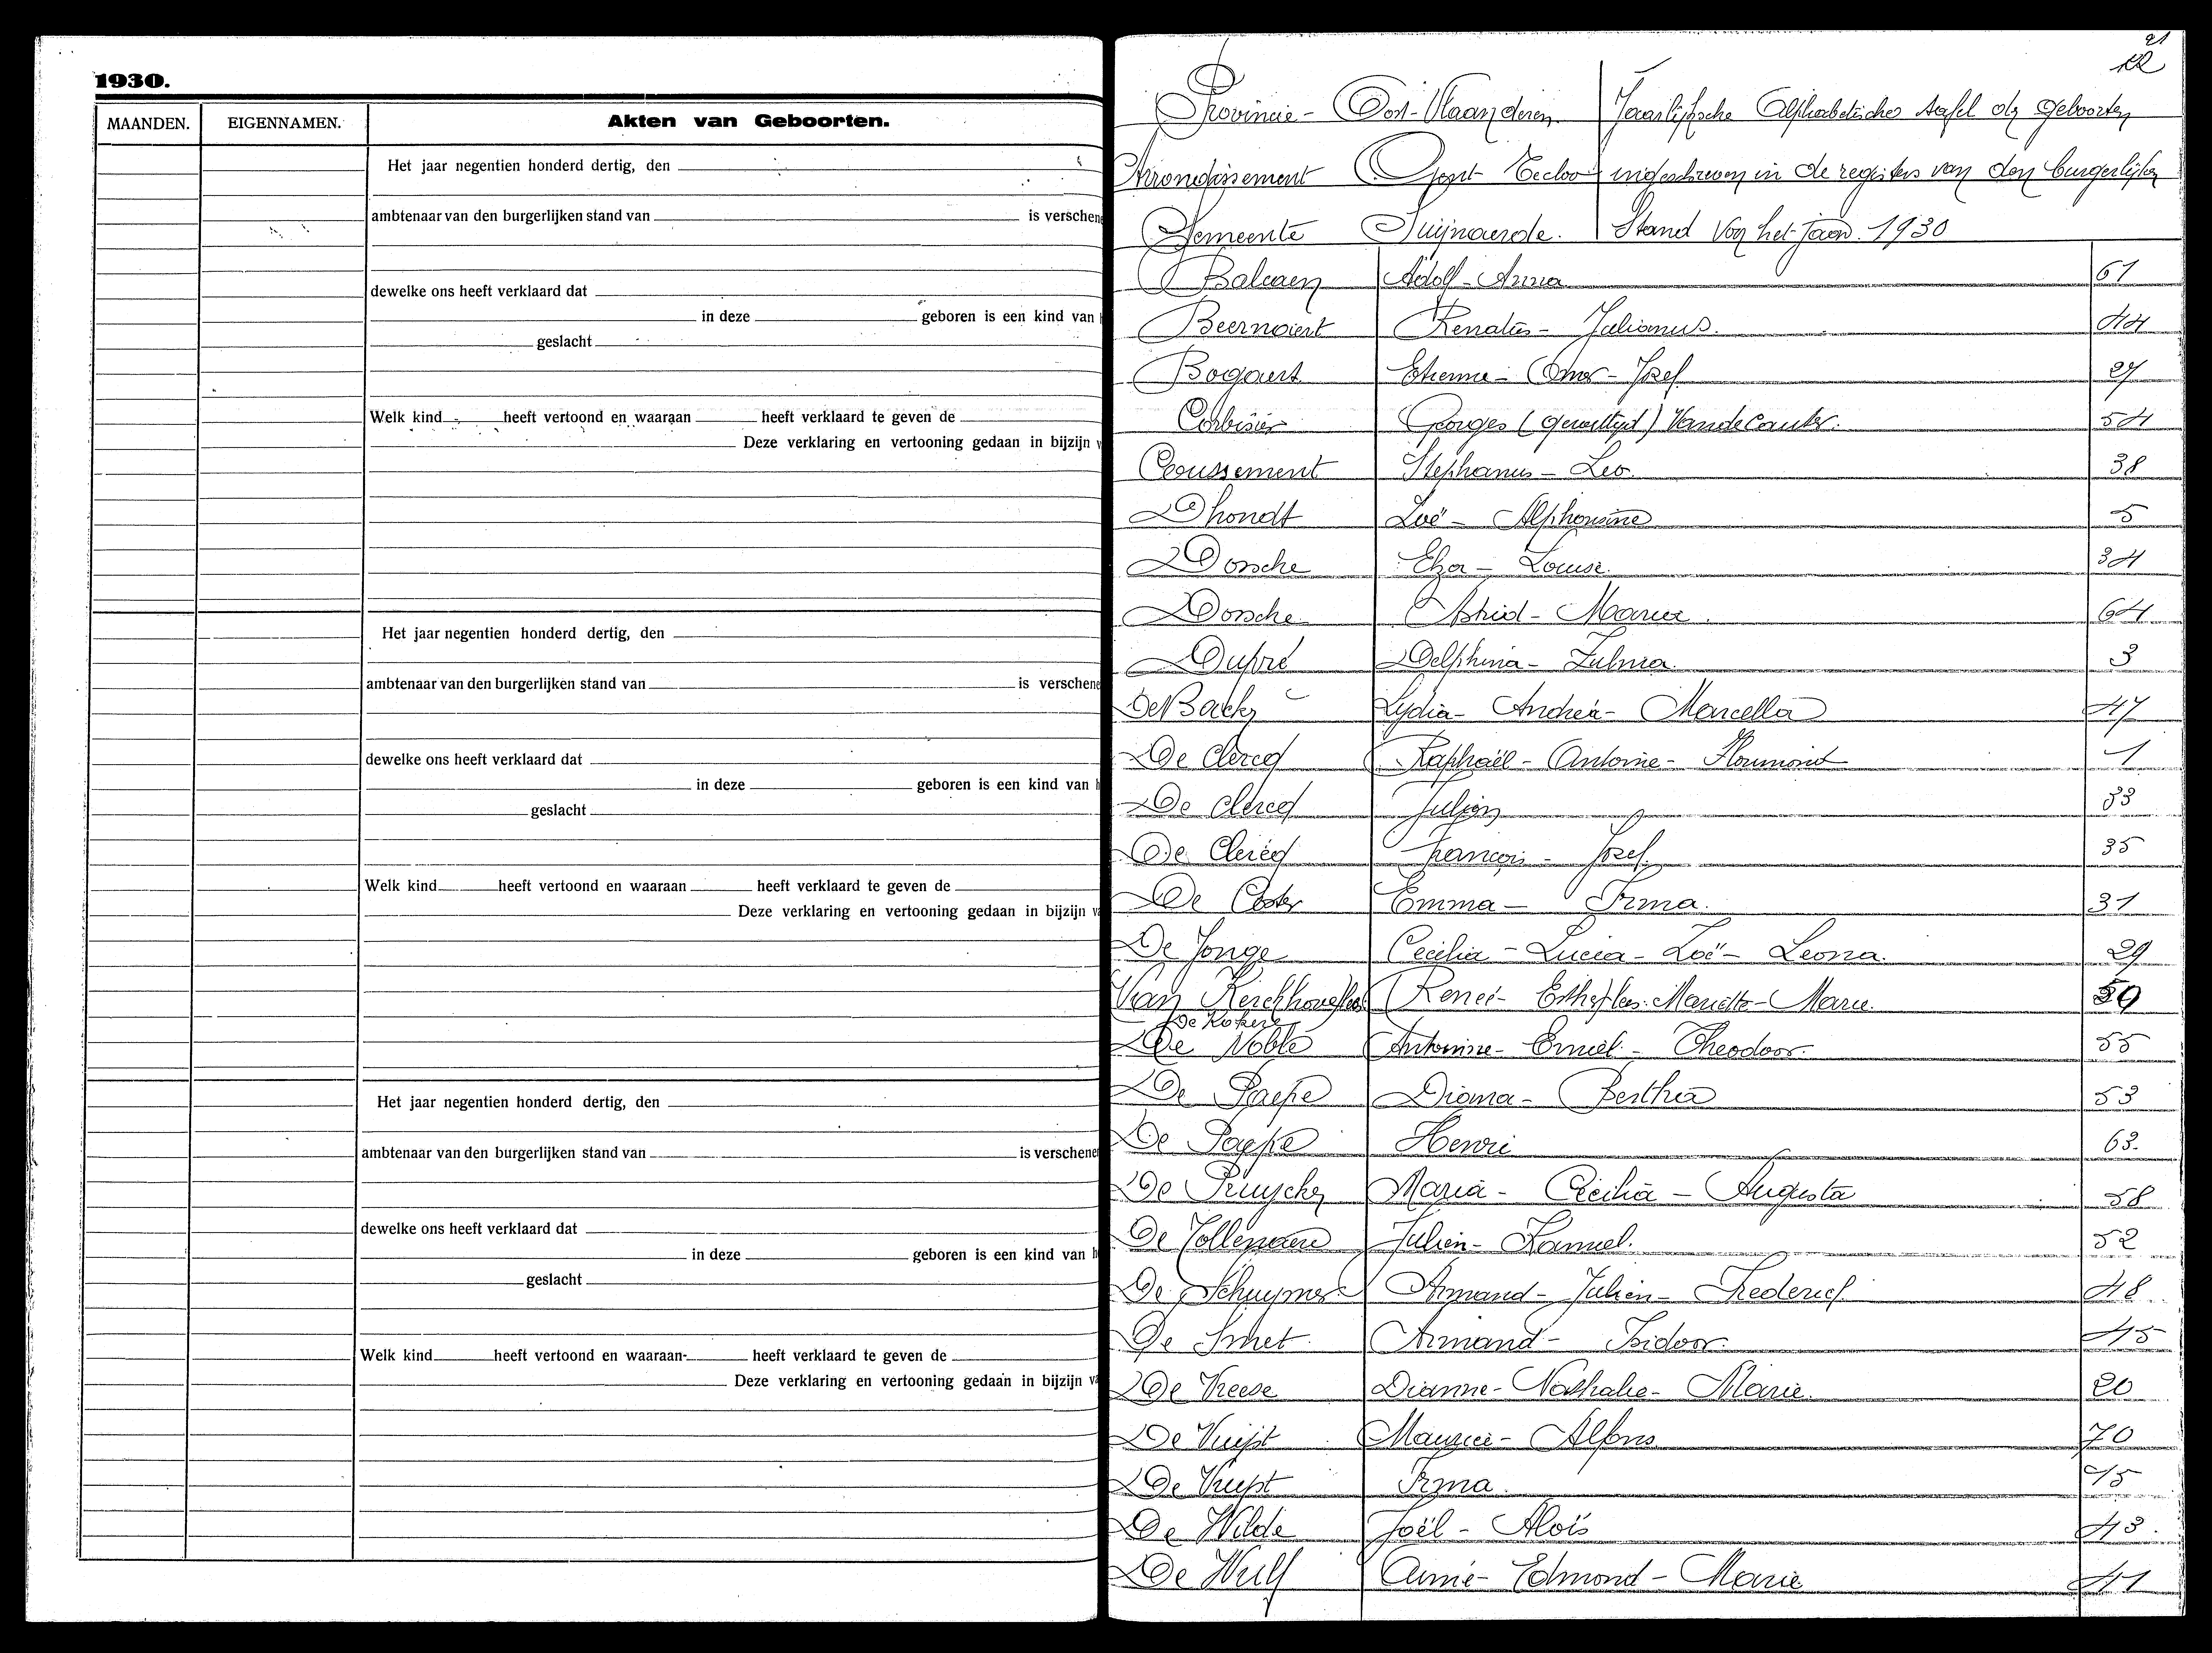 1930.
MAANDEN. EIGENNAMEN. Akten van Geboorten.
Het jaar negentien honderd dertig, den
ambtenaar van den burgerlijken stand van is verschene
dewelke ons heeft verklaard dat
in deze geboren is een kind van h
geslacht
Welk kind heeft vertoond en waaraan heeft verklaard te geven de
Deze verklaring en vertooning gedaan in bijzijn v
Het jaar negentien honderd dertig, den
ambtenaar van den burgerlijken stand van is verschene
dewelke ons heeft verklaard dat
in deze geboren is een kind van h
geslacht
Welk kind heeft vertoond en waaraan heeft verklaard te geven de
Deze verklaring en vertooning gedaan in bijzijn va
Het jaar negentien honderd dertig, den
ambtenaar van den burgerlijken stand van is verschenen
dewelke ons heeft verklaard dat
in deze geboren is een kind van h
geslacht
Welk kind heeft vertoond en waaraan- heeft verklaard te geven de
Deze verklaring en vertooning gedaan in bijzijn va
21
Provincie - Oost-Vlaanderen. Jaarlijksche Alphabetische tafel der geboorten
Arrondissement Gent-Eecloo ingeschreven in de registers van den burgerlijken
Gemeente Swijnaerde. Stand Voor het jaar. 1930
Balcaen Adolf - Anna 61
Beernaert Renatus - Julianus. 44
Bogaert Etienne - Omer - Jozef 27
Corbisier Georges (gewettigd) Vandecauter. 54
Coussement Stephanus - Leo. 38
Dhondt Zoë - Alphonsine 5
Dossche Elza - Louise. 34
Dossche Astrid - Maria. 64
Dupré Delphina - Zulma. 3
De Backer Lydia - Andréa - Marcella 47
De Clercq Raphaël - Antoine - Florimond 1
De Clercq Julien 33
De Clercq François - Jozef. 35
De Coster Emma - Irma. 31
De Jonge Cecilia - Lucia - Zoë - Leona. 29
Van Kerckhove Renée - Esther Mariette - Marie. 59
De Kokere
De Noble Antoinne - Emiel - Theodoor. 55
De Paepe Diana - Bertha 53
De Paepe Henri 63.
De Pruycker Maria - Cecilia - Augusta 58
De Tollenaere Julien - Kamiel. 52
De Schuymer Armand - Julien - Frederic 48
De Smet. Armand - Isidoor. 45
De Vreese Dianne - Nathalie - Marie. 20
De Vuijst Maurice - Alfons 70
De Vuyst Irma. 15
De Wilde Joël - Aloïs 43.
De Wulf Aimé - Edmond - Marie 41